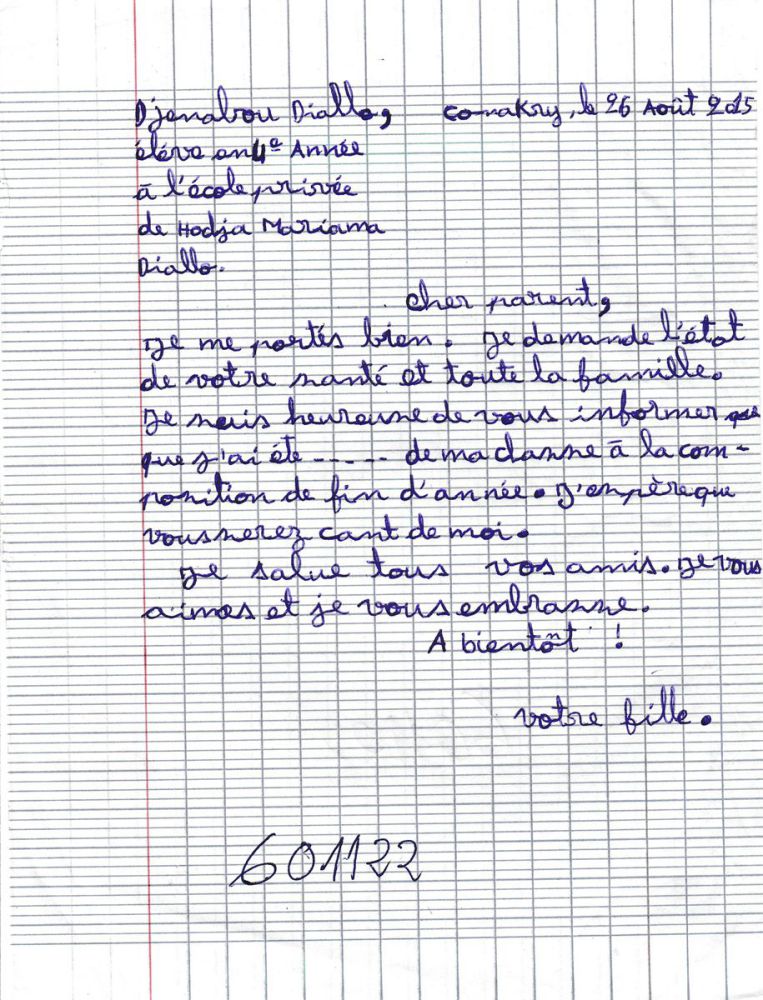 Djenabou Diallo, Conakry, le 26 Août 2015
éléve en 4e Année
à l'école privée
de Hadja Mariama
Diallo.
cher parent,
Je me portes bien. Je demande l'état
de votre santé et toute la famille.
Je suis heureuse de vous informer que
que j'ai éte ----- de ma classe à la com-
position de fin d'année. J'espère que
vous serez cant de moi.
Je salue tous vos amis. Je vous
aimes et je vous embrasse.
A bientôt !
votre fille.
601122